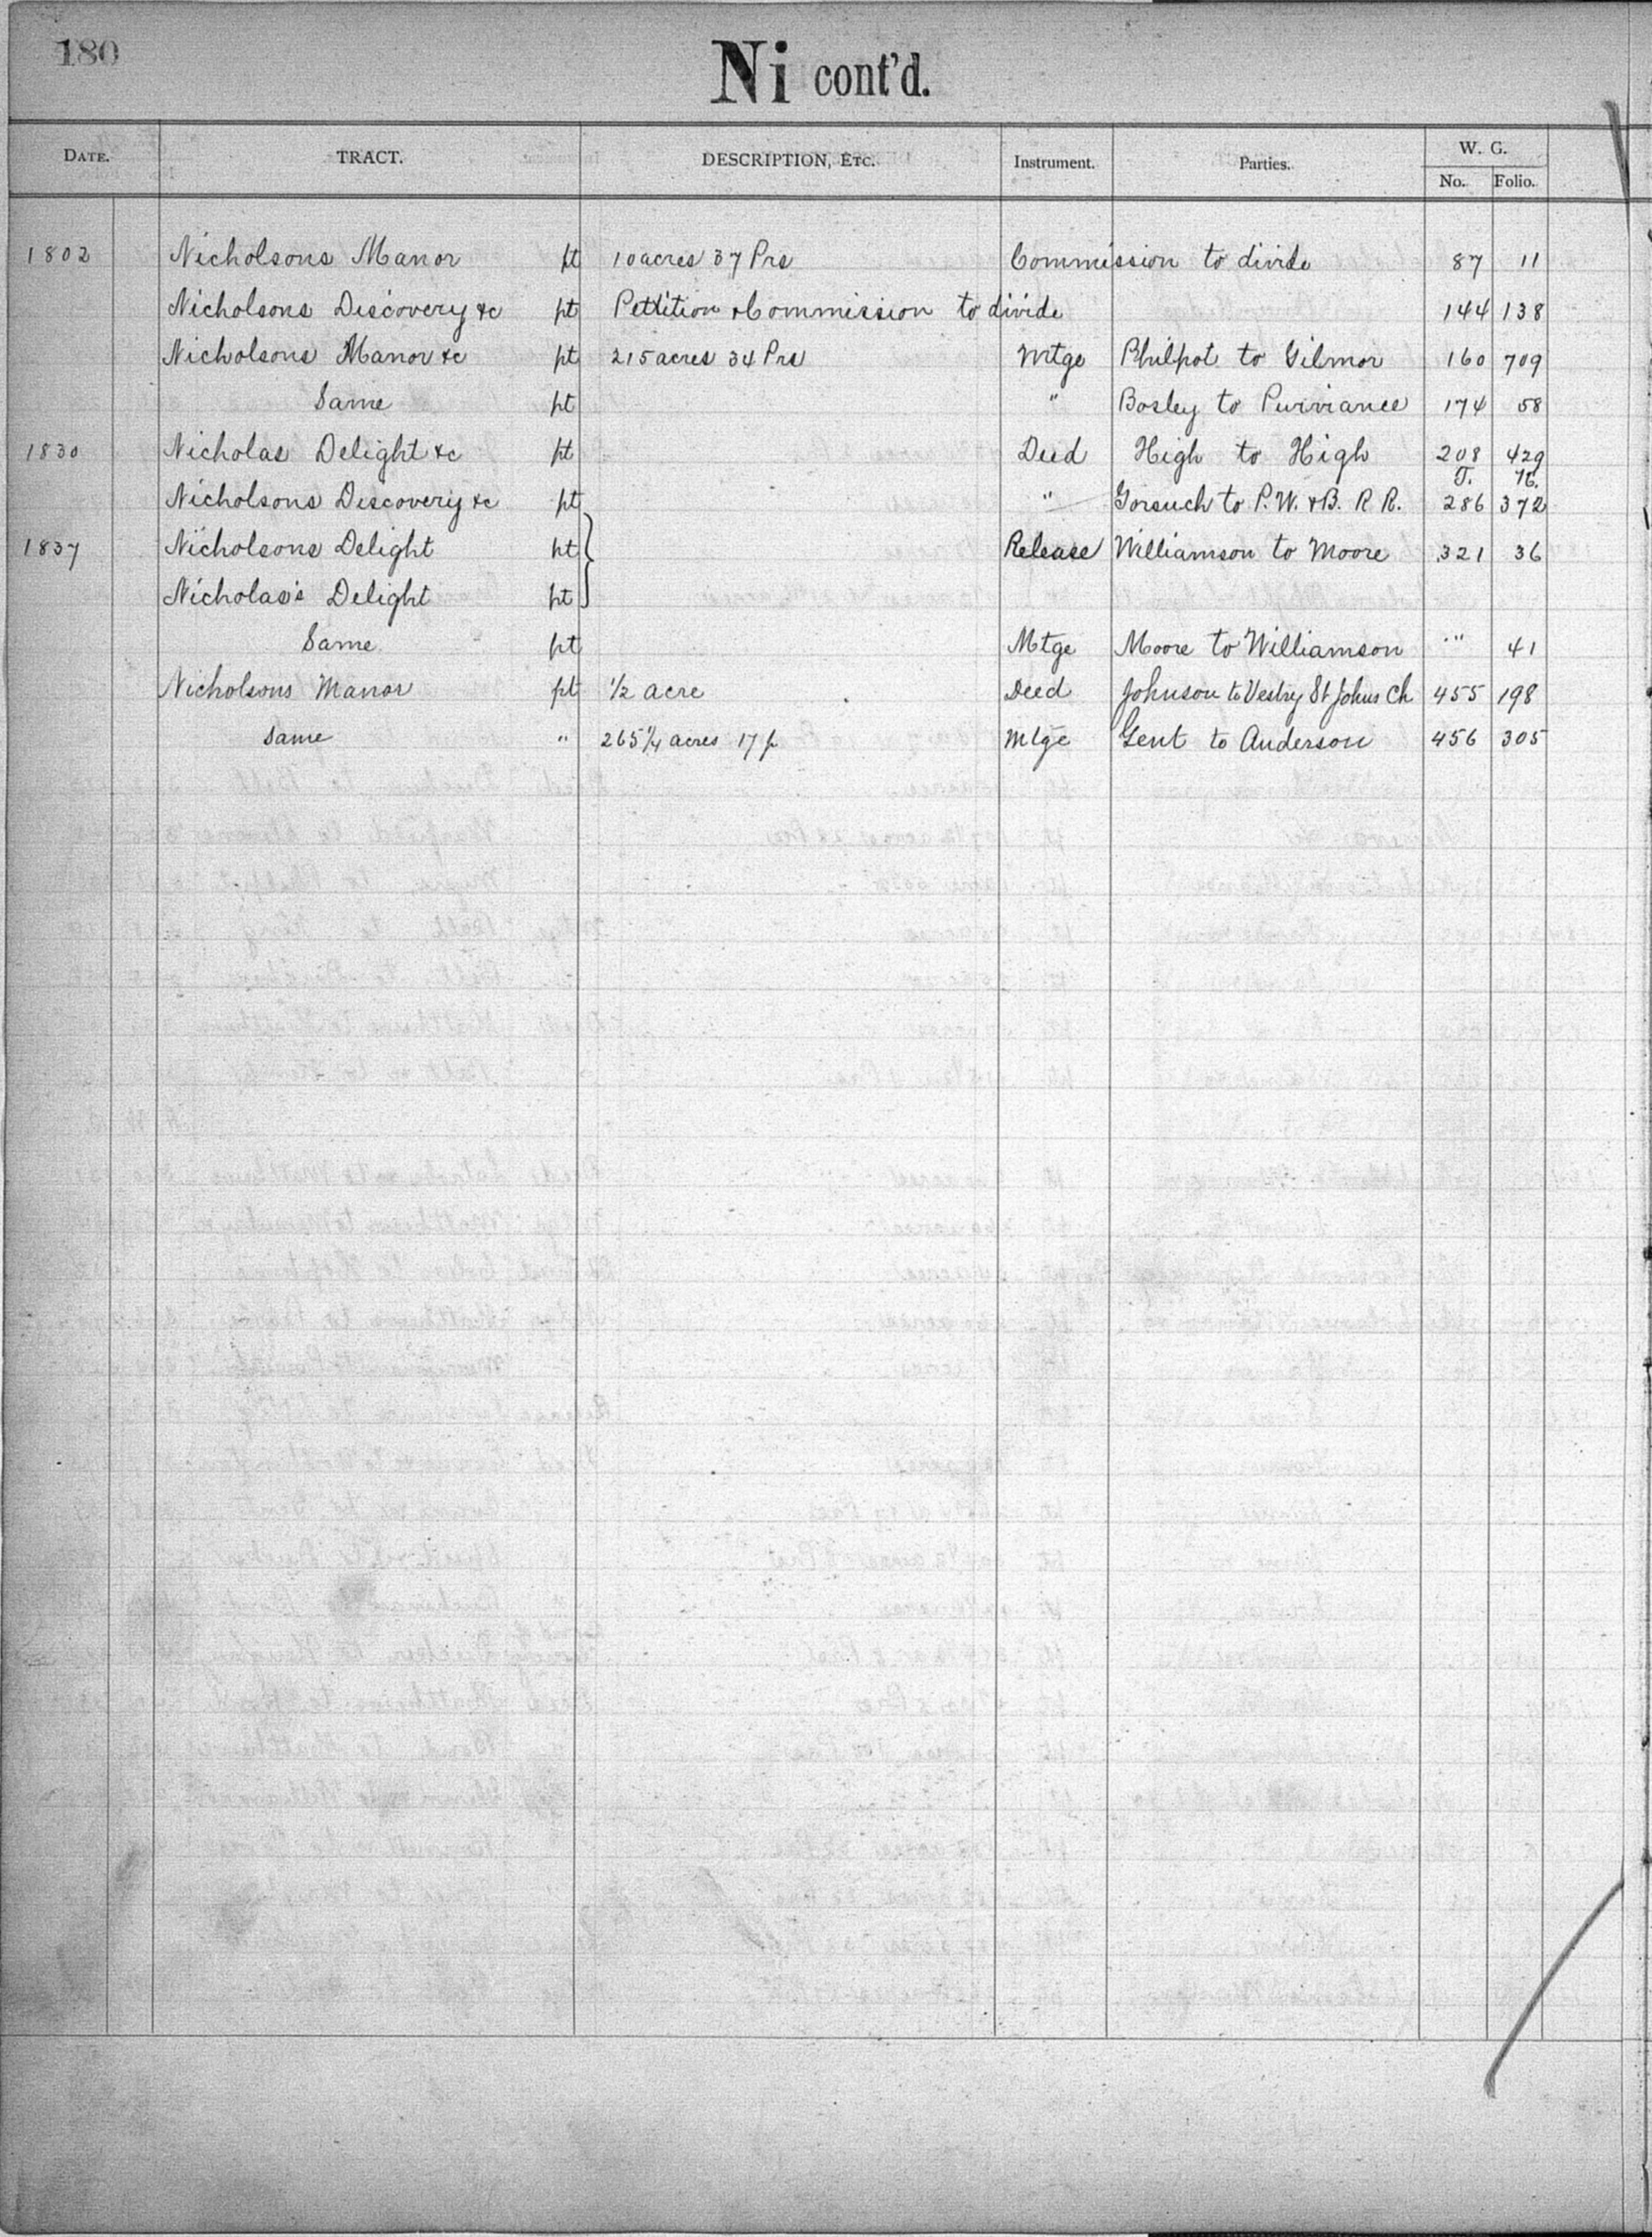 180
Ni cont'd.
DATE. TRACT. DESCRIPTION, ETC. Instrument. Parties. W. G.
No. Folio.
1802 Nicholsons Manor pt 10 acres 37 Prs Commission to divide 87 11
Nicholsons Discovery &c pt Petition & Commission to divide 144 138
Nicholsons Manor &c pt 215 acres 34 Prs Mtge Philpot to Gilmor 160 709
Same pt " Bosley to Purviance 174 58
1830 Nicholas Delight &c pt Deed High to High 208 429
T. K.
Nicholsons Discovery &c pt " Gorsuch to P. W. & B. R R. 286 372
1837 Nicholsons Delight pt Release Williamson to Moore 321 36
Nicholas's Delight pt
Same pt Mtge Moore to Williamson " 41
Nicholsons Manor pt 1/2 acre Deed Johnson to Vestry St Johns Ch 455 198
Same " 265 1/4 acres 17 p Mtge Gent to Anderson 456 305